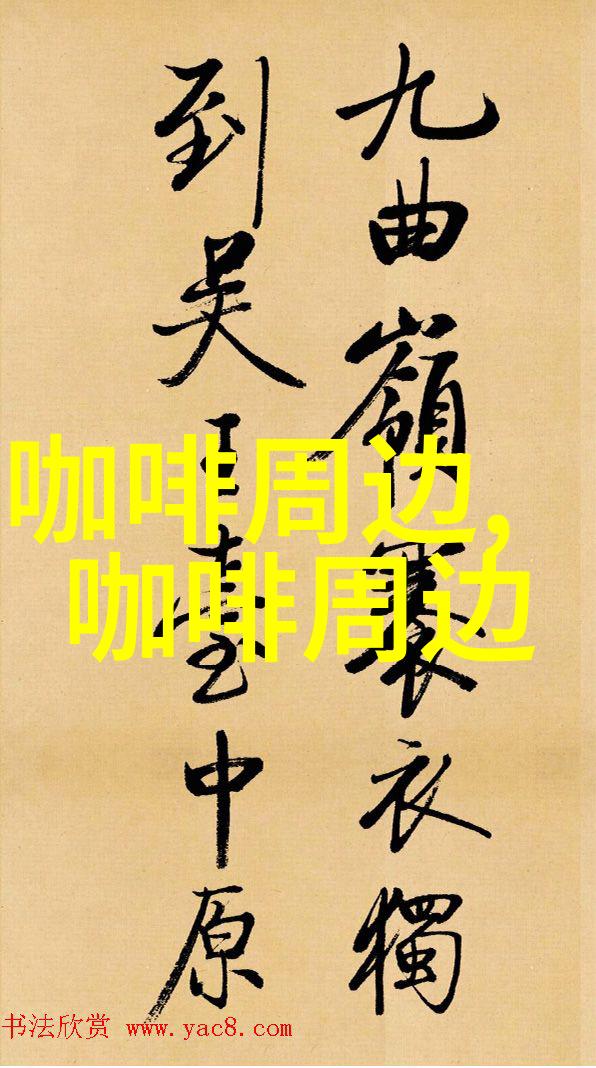 九曲嶺裹衣獨
到吴王臺中原
咖啡周边,
咖啡周边
书法欣赏 www.yac8.com